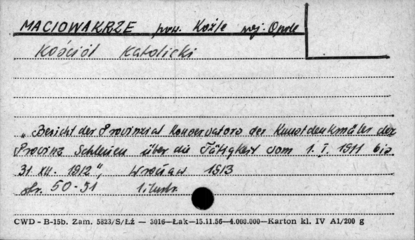 MACIOWAKRZE pow. Koźle woj. Opole
Kościół Katolicki
"Bericht der Provinzial Konservators der Kunstdenkmäler der
Provinz Schlesien über die Tätigkeit vom 1. I. 1911 bis
31 XII. 1912", Wrocław 1913
str. 50-51 1 ilustr.
CWD - B-15b. Zam. 5823/S/Łż — 3016—Łak—15.11.56—4.000.000—Karton kl. IV A1/200 g